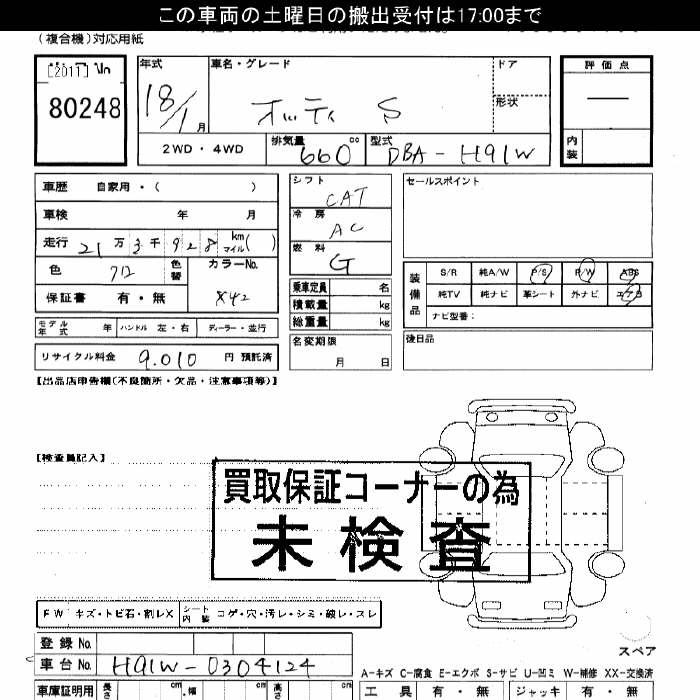 この車両の土曜日の搬出受付は17:00まで
(複合機)対応用紙
80248
年式 18/1 月
車名・グレード オッティ S
ドア
形状
評価点
内装
2WD・4WD
排気量 660 cc
型式 DBA-H91W
車歴 自家用・( )
車検 年 月
走行 21万3千928 km マイル( )
色 色替 カラーNo.
保証書 有・無
モデル年式 年 ハンドル 左・右 ディーラー・並行
リサイクル料金 9,010 円 預託済
シフト CAT
冷房 AC
燃料 G
乗車定員 名
積載量 kg
総重量 kg
名変期限 月 日
セールスポイント
装備品
S/R 純A/W P/S P/W ABS
純TV 純ナビ 革シート 外ナビ エアB
ナビ型番:
後日品
【出品店申告欄(不良箇所・欠品・注意事項等)】
【検査員記入】
買取保証コーナーの為
未検査
FW キズ・トビ石・割レX シート内装 コゲ・穴・汚レ・シミ・破レ・スレ
スペア
登録No.
車台No. H91W-0304124
A-キズ C-腐食 E-エクボ S-サビ U-凹ミ W-補修 XX-交換済
車庫証明用 長さ cm 幅 cm 高さ cm
工具 有・無 ジャッキ 有・無